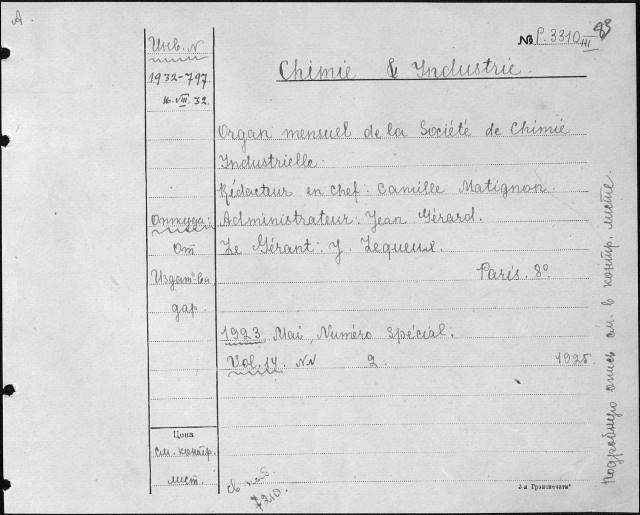 A.
№ P. 3310 III 83
Инв. N
1932-797
16. VIII. 32.
Chimie & Industrie.
Organ mensuel de la Société de Chimie
Industrielle.
Rédacteur en chef: Camille Matignon.
Откуда: Administrateur: Jean Gérard.
От Le Gérant: J. Lequeux.
Издат-ва Paris. 8°
дар.
1923. Mai, Numéro Spécial.
Vol. 14. NN 2. 1925.
Цена
см. контр.
лист.
7210.
3-я Транспечати"
Подробную опись см. в контр. листе.